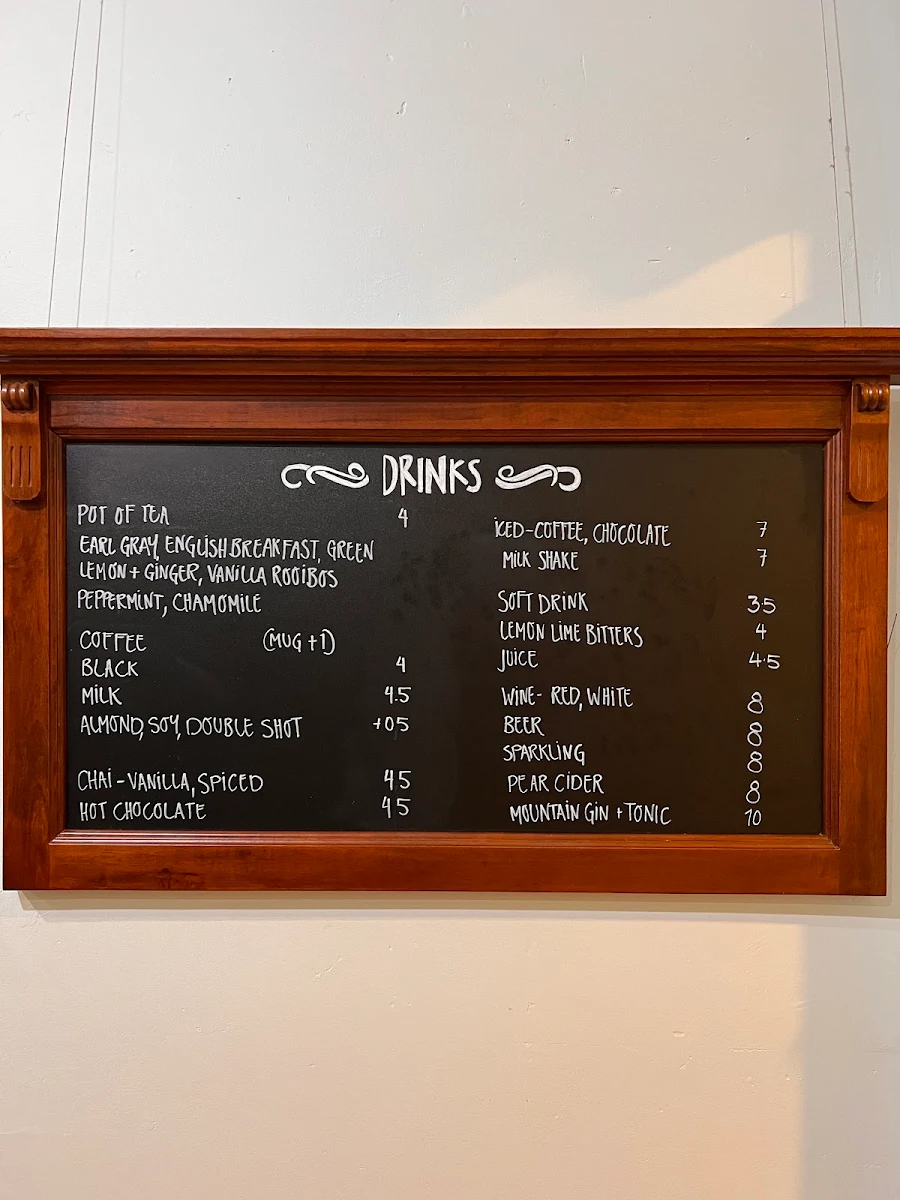 DRINKS
POT OF TEA 4
EARL GRAY, ENGLISH BREAKFAST, GREEN
LEMON + GINGER, VANILLA ROOIBOS
PEPPERMINT, CHAMOMILE
COFFEE (MUG +1)
BLACK 4
MILK 4.5
ALMOND, SOY, DOUBLE SHOT +05
CHAI - VANILLA, SPICED 45
HOT CHOCOLATE 45
ICED-COFFEE, CHOCOLATE 7
MILK SHAKE 7
SOFT DRINK 3.5
LEMON LIME BITTERS 4
JUICE 4.5
WINE- RED, WHITE 8
BEER 8
SPARKLING 8
PEAR CIDER 8
MOUNTAIN GIN + TONIC 10